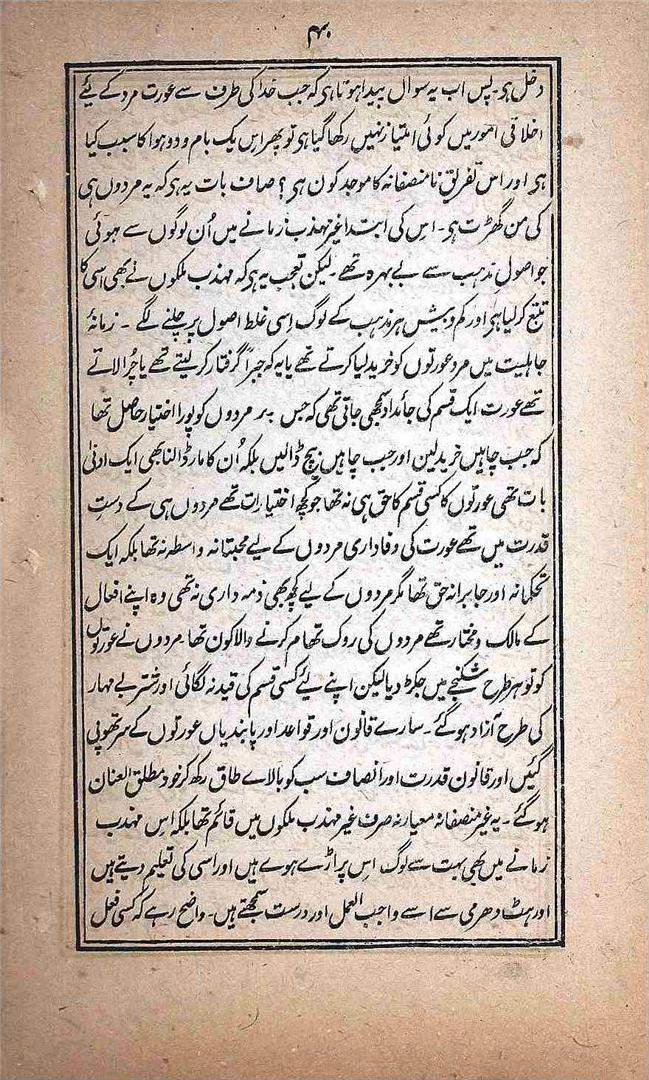 ۴۰
دخل ہی۔ پس اب یہ سوال پیدا ہوتا ہی کہ جب خدا کی طرف سے عورت مرد کے لیٔے
اخلاقی امور میں کوئی امتیاز نہیں رکھا گیا ہی تو پھر اِس یک بام و دو ہوا کا سبب کیا
ہی اور اس تفریقِ نامنصفانہ کا موجد کون ہی؟ صاف بات یہ ہی کہ یہ مردوں ہی
کی من گھڑت ہی۔ اس کی ابتدا غیر مہذب زمانے میں اُن لوگوں سے ہوئی
جو اصول مذہب سے بے بہرہ تھے۔ لیکن تعجب یہ ہی کہ مہذب ملکوں نے بھی اسی کا
تتبع کر لیا ہی اور کم و بیش ہر مذہب کے لوگ اِسی غلط اصول پر چلنے لگے ۔ زمانۂ
جاہلیت میں مرد عورتوں کو خرید لیا کرتے تھے یا یہ کہ جبراً گرفتار کر لیتے تھے یا چُرا لاتے
تھے عورت ایک قسم کی جائداد سمجھی جاتی تھی کہ جس پر مردوں کو پورا اختیار حاصل تھا
کہ جب چاہیں خرید لین اور جب چاہیں بیچ ڈالیں بلکہ اُن کا مار ڈالنا بھی ایک ادنیٰ
بات تھی عورتوں کا کسی قسم کا حق ہی نہ تھا جو کچھ اختیارات تھے مردوں ہی کے دستِ
قدرت میں تھے عورت کی وفاداری مردوں کے لیے محبتانہ واسطہ نہ تھا بلکہ ایک
تحکمانہ اور جابرانہ حق تھا مگر مردوں کے لیے کچھ بھی ذمہ داری نہ تھی وہ اپنے افعال
کے مالک و مختار تھے مردوں کی روک تھام کرنے والا کون تھا۔ مردوں نے عورتوں
کو تو ہر طرح شکنجے میں جکڑ دیا لیکن اپنے لیٔے کسی قسم کی قید نہ لگائی اور شتر بے مہار
کی طرح آزاد ہو گئے۔ سارے قانون اور قواعد اور پابندیاں عورتوں کے سر تھوپی
گئیں اور قانون قدرت اور انصاف سب کو بالاے طاق رکھ کر خود مطلق العنان
ہو گئے۔ یہ غیر منصفانہ معیار نہ صرف غیر مہذب ملکوں میں قائم تھا بلکہ اِس مہذب
زمانے میں بھی بہت سے لوگ اس پر اڑے ہوے ہیں اور اسی کی تعلیم دیتے ہیں
اور ہٹ دھرمی سے اسے واجب العمل اور درست سمجھتے ہیں۔ واضح رہے کہ کسی فعل